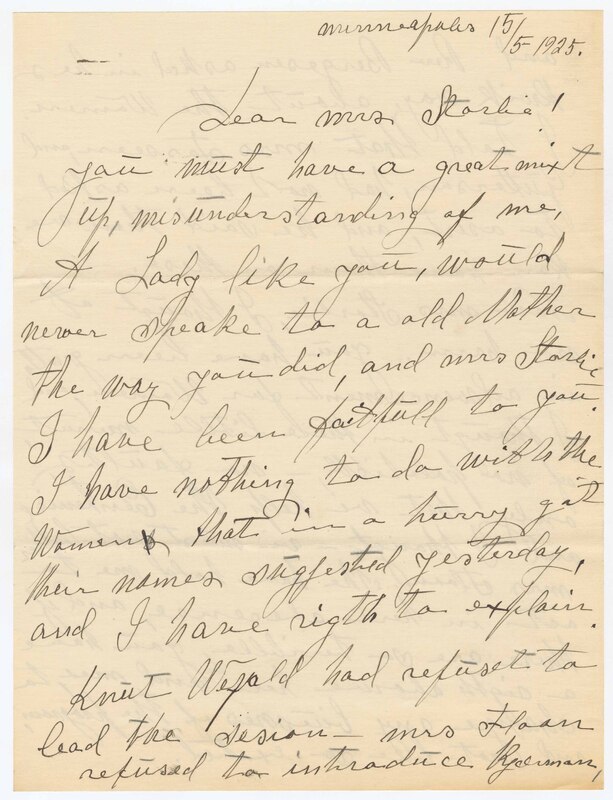 Minneapolis 15/5-1925.
Dear Mrs Storlie!
you must have a great mixt
up, misunderstanding of me,
A Lady like you, would
never speake to a old Mother
the way you did, and Mrs Storlie
I have been faitfull to you.
I have nothing to do with the
Women that in a hurry gat
their names suggested yesterday,
and I have rigth to explain.
Knut Wefald had refuset to
lead the sesion – Mrs Hoan
refused to introduce Bjornson,